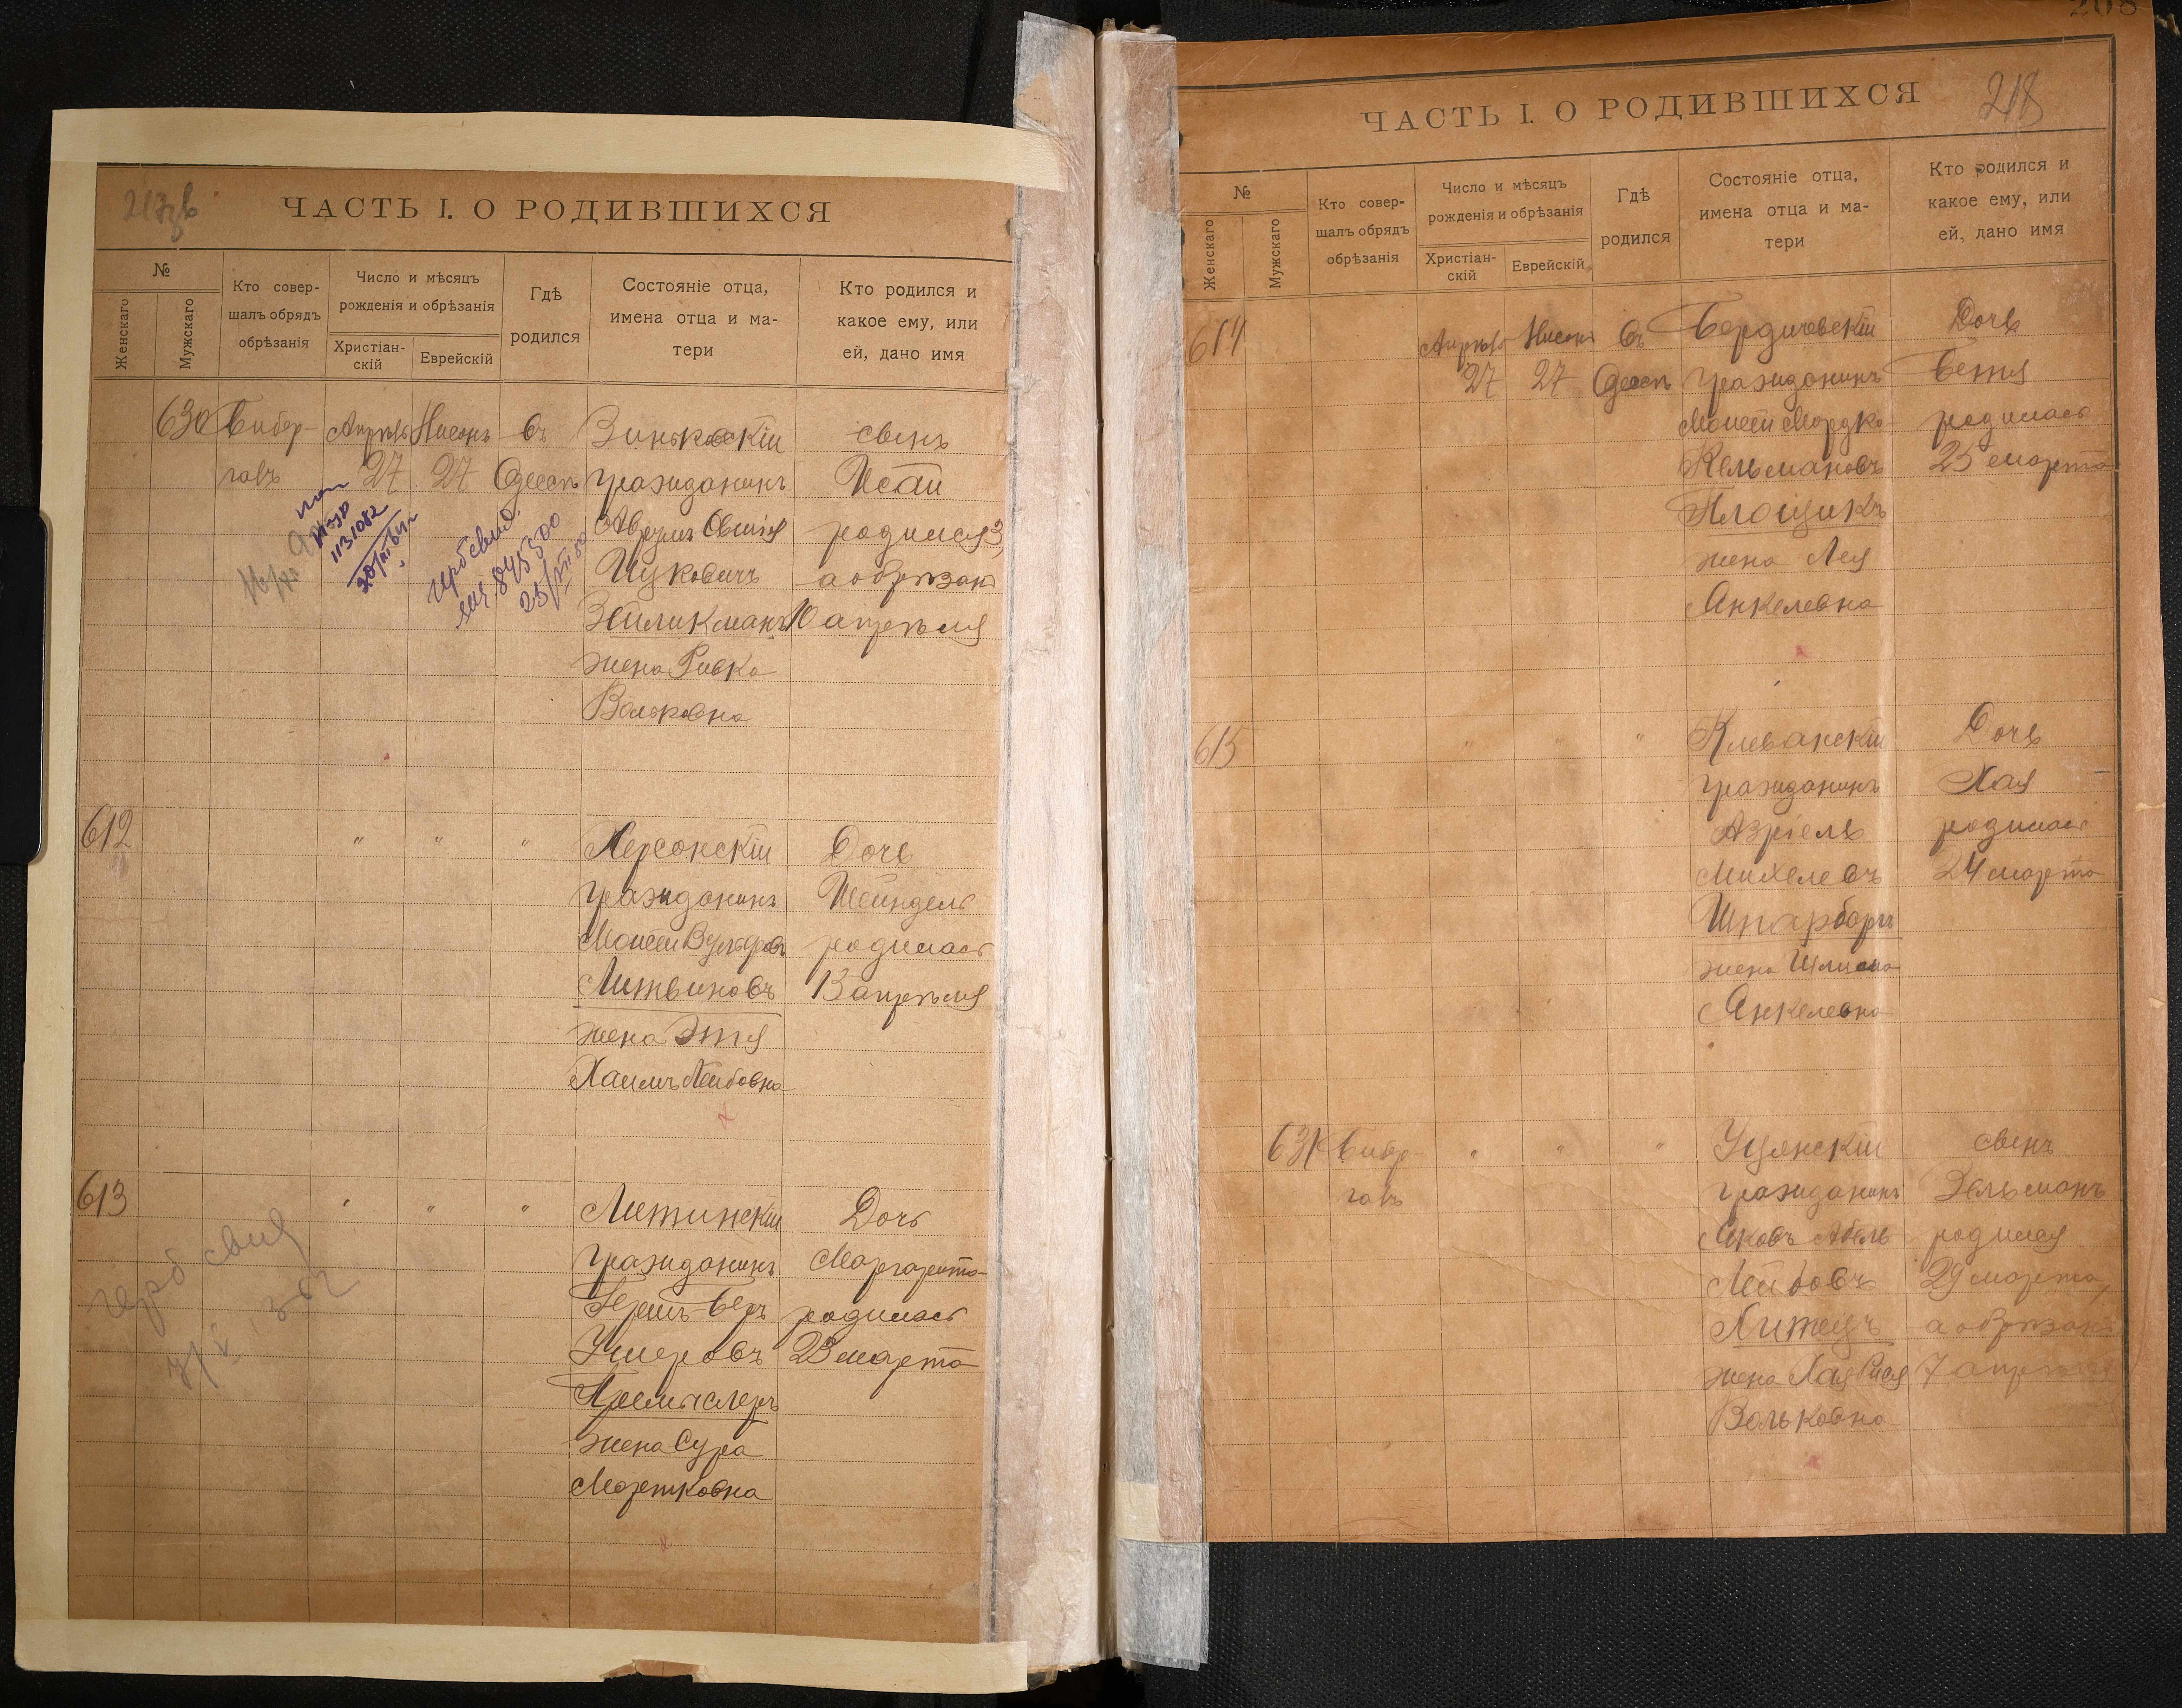 ЧАСТЬ I. О РОДИВШИХСЯ
№
Женскаго
Мужскаго
Кто совер-
шалъ обрядъ
обрѣзанія
Число и мѣсяцъ
рожденія и обрѣзанія
Христіан-
скій
Еврейскій
Гдѣ
родился
Состояніе отца,
имена отца и ма-
тери
Кто родился и
какое ему, или
ей, дано имя
630
Бибер-
гавъ
Апрѣль
27
Нисонъ
27
Въ
Одессѣ
Зиньковскій
гражданинъ
Аврумъ Овшія
Ицковичъ
жена Ривка
Вольковна
сынъ
Исай
родился 3,
а обрѣзанъ
10 апрѣля
1131082
845300
612
" " "
Херсонскій
гражданинъ
Моисей Вульфовъ
Литвиновъ
жена Этя
Хаимъ Лейбовна
Дочь
Шейндель
родилась
13 апрѣля
613
" " "
Летинскій
гражданинъ
Гершъ-Беръ
Ушеровъ
жена Сура
Мортковна
Дочь
Маргарита
родилась
23 марта
218
ЧАСТЬ I. О РОДИВШИХСЯ
№
Женскаго
Мужскаго
Кто совер-
шалъ обрядъ
обрѣзанія
Число и мѣсяцъ
рожденія и обрѣзанія
Христіан-
скій
Еврейскій
Гдѣ
родился
Состояніе отца,
имена отца и ма-
тери
Кто родился и
какое ему, или
ей, дано имя
614
Апрѣль
27
Нисонъ
27
Въ
Одессѣ
Бердичевскій
гражданинъ
Моисей Мордко
Кельмановъ
Площикъ
жена Лея
Янкелевна
Дочь
Бетя
родилась
25 марта
615
" " "
Клеванскій
гражданинъ
Азріель
Михелевъ
жена
Янкелевна
Дочь
Хая
родилась
24 марта
631
Бибер-
гавъ
" " "
гражданинъ
Яковъ Абель
Лейбовъ
жена Хая
Вольковна
сынъ
Зельманъ
родился
29 марта,
а обрѣзанъ
7 апрѣля